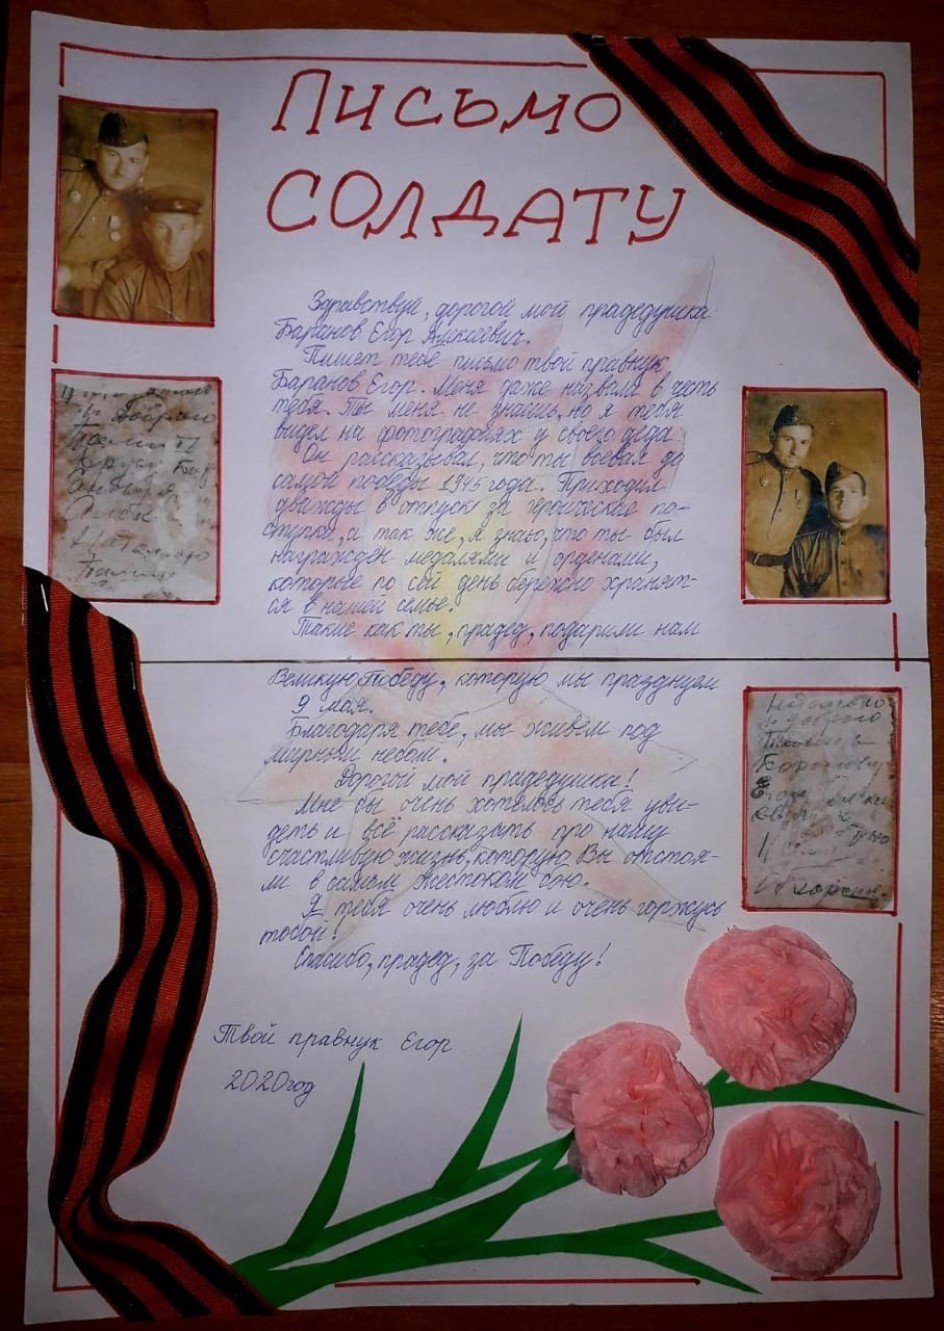 Письмо
солдату
Здравствуй, дорогой мой прадедушка
Баранов Егор Алексеевич.
Пишет тебе письмо твой правнук
Баранов Егор. Меня даже назвали в честь
тебя. Ты меня не знаешь, но я тебя
видел на фотографиях у своего деда.
Он рассказывал, что ты воевал до
самой победы 1945 года. Приходил
дважды в отпуск за геройские по-
ступки, а так же, я знаю, что ты был
награжден медалями и орденами,
которые по сей день бережно хранят-
ся в нашей семье.
Такие как ты, прадед, подарили нам
Великую Победу, которую мы празднуем
9 мая.
Благодаря тебе, мы живём под
мирным небом.
Дорогой мой прадедушка!
Мне бы очень хотелось тебя уви-
деть и всё рассказать про нашу
счастливую жизнь, которую Вы отстоя-
ли в самом жестоком бою.
Я тебя очень люблю и очень горжусь
тобой!
Спасибо, прадед, за Победу!
Твой правнук Егор
2020 год
доброго
и доброго